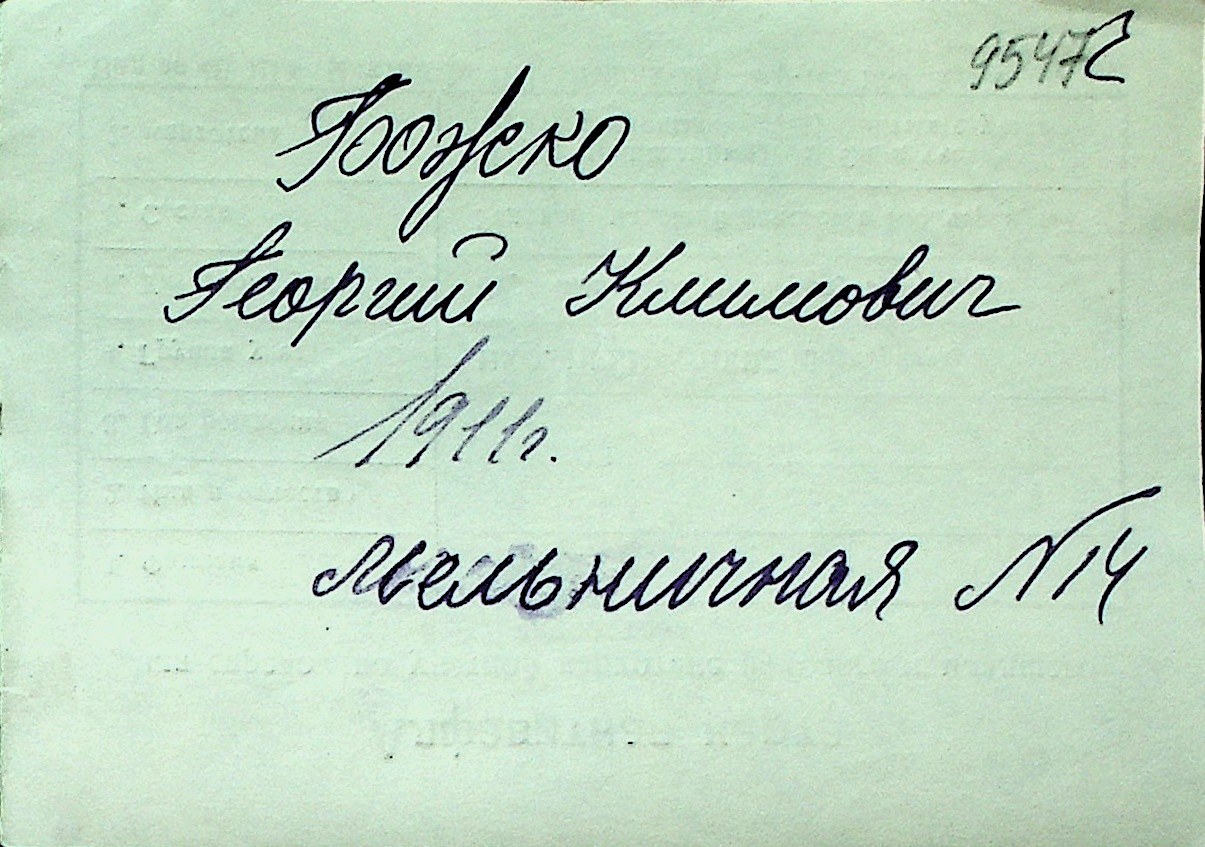 9547
Божко
Георгий Климович
1911г.
мельничная N14